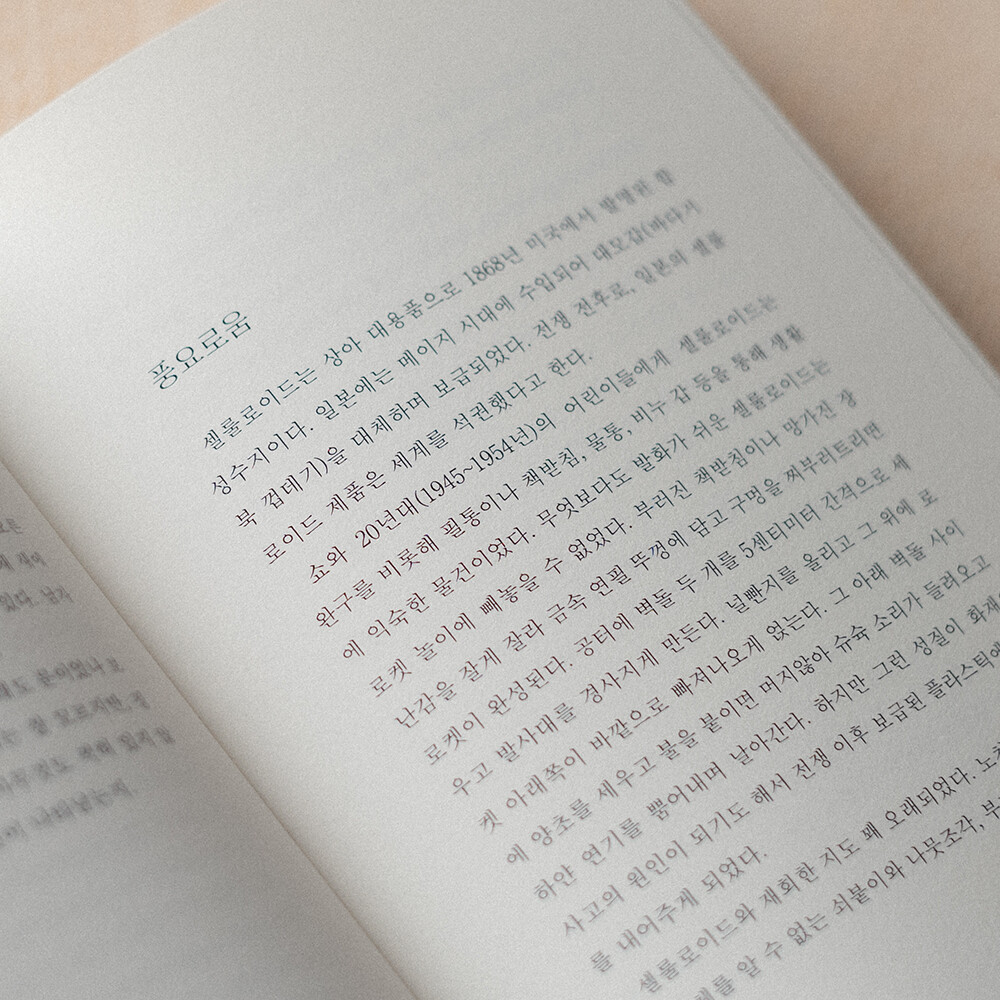 풍요로움
셀룰로이드는 상아 대용품으로 1868년 미국에서 발명된 합
성수지이다. 일본에는 메이지 시대에 수입되어 대모갑(바다거
북 껍데기)을 대체하며 보급되었다. 전쟁 전후로, 일본의 셀룰
로이드 제품은 세계를 석권했다고 한다.
쇼와 20년대(1945~1954년)의 어린이들에게 셀룰로이드는
완구를 비롯해 필통이나 책받침, 물통, 비누 갑 등을 통해 생활
에 익숙한 물건이었다. 무엇보다도 발화가 쉬운 셀룰로이드는
로켓 놀이에 빼놓을 수 없었다. 부러진 책받침이나 망가진 장
난감을 잘게 잘라 금속 연필 뚜껑에 담고 구멍을 찌부러트리면
로켓이 완성된다. 공터에 벽돌 두 개를 5센티미터 간격으로 세
우고 발사대를 경사지게 만든다. 널빤지를 올리고 그 위에 로
켓 아래쪽이 바깥으로 빠져나오게 얹는다. 그 아래 벽돌 사이
에 양초를 세우고 불을 붙이면 머지않아 슈슉 소리가 들려오고
하얀 연기를 뿜어내며 날아간다. 하지만 그런 성질이 화재
사고의 원인이 되기도 해서 전쟁 이후 보급된 플라스틱에
를 내어주게 되었다.
셀룰로이드와 재회한 지도 꽤 오래되었다.
를 알 수 없는 쇠붙이와 나뭇조각,